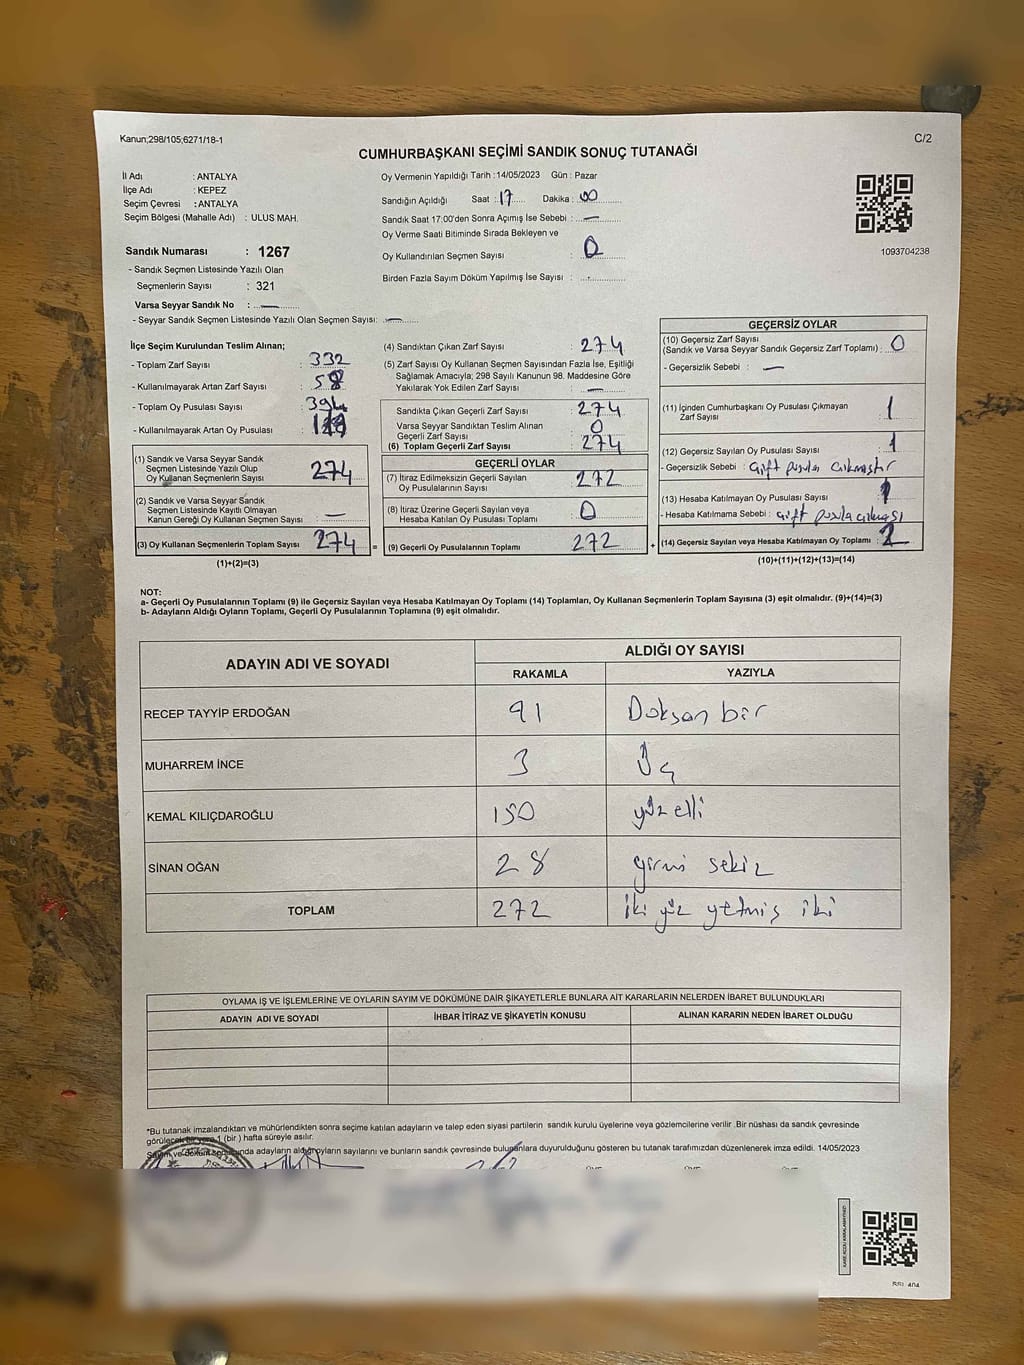 Kanun;298/105;6271/18-1
C/2
CUMHURBAŞKANI SEÇİMİ SANDIK SONUÇ TUTANAĞI
İl Adı : ANTALYA
İlçe Adı : KEPEZ
Seçim Çevresi : ANTALYA
Seçim Bölgesi (Mahalle Adı) : ULUS MAH.
Oy Vermenin Yapıldığı Tarih : 14/05/2023 Gün : Pazar
Sandığın Açıldığı Saat : 17 Dakika : 00
Sandık Saat 17:00'den Sonra Açımış İse Sebebi : —
Oy Verme Saati Bitiminde Sırada Bekleyen ve
Oy Kullandırılan Seçmen Sayısı : 0
Birden Fazla Sayım Döküm Yapılmış İse Sayısı :
1093704238
Sandık Numarası : 1267
- Sandık Seçmen Listesinde Yazılı Olan
Seçmenlerin Sayısı : 321
Varsa Seyyar Sandık No : —
- Seyyar Sandık Seçmen Listesinde Yazılı Olan Seçmen Sayısı: —
İlçe Seçim Kurulundan Teslim Alınan;
- Toplam Zarf Sayısı : 332
- Kullanılmayarak Artan Zarf Sayısı : 58
- Toplam Oy Pusulası Sayısı : 394
- Kullanılmayarak Artan Oy Pusulası :
(1) Sandık ve Varsa Seyyar Sandık
Seçmen Listesinde Yazılı Olup
Oy Kullanan Seçmenlerin Sayısı : 274
(2) Sandık ve Varsa Seyyar Sandık
Seçmen Listesinde Kayıtlı Olmayan
Kanun Gereği Oy Kullanan Seçmen Sayısı : —
(3) Oy Kullanan Seçmenlerin Toplam Sayısı : 274 =
(1)+(2)=(3)
(4) Sandıktan Çıkan Zarf Sayısı : 274
(5) Zarf Sayısı Oy Kullanan Seçmen Sayısından Fazla İse, Eşitliği
Sağlamak Amacıyla; 298 Sayılı Kanunun 98. Maddesine Göre
Yakılarak Yok Edilen Zarf Sayısı : —
Sandıkta Çıkan Geçerli Zarf Sayısı : 274
Varsa Seyyar Sandıktan Teslim Alınan
Geçerli Zarf Sayısı : 0
(6) Toplam Geçerli Zarf Sayısı : 274
GEÇERLİ OYLAR
(7) İtiraz Edilmeksizin Geçerli Sayılan
Oy Pusulalarının Sayısı : 272
(8) İtiraz Üzerine Geçerli Sayılan veya
Hesaba Katılan Oy Pusulası Toplamı : 0
(9) Geçerli Oy Pusulalarının Toplamı : 272 +
GEÇERSİZ OYLAR
(10) Geçersiz Zarf Sayısı
(Sandık ve Varsa Seyyar Sandık Geçersiz Zarf Toplamı) : 0
- Geçersizlik Sebebi : —
(11) İçinden Cumhurbaşkanı Oy Pusulası Çıkmayan
Zarf Sayısı : 1
(12) Geçersiz Sayılan Oy Pusulası Sayısı : 1
- Geçersizlik Sebebi : çift pusula çıkmıştır
(13) Hesaba Katılmayan Oy Pusulası Sayısı :
- Hesaba Katılmama Sebebi : çift pusula çıkması
(14) Geçersiz Sayılan veya Hesaba Katılmayan Oy Toplamı : 2
(10)+(11)+(12)+(13)=(14)
NOT:
a- Geçerli Oy Pusulalarının Toplamı (9) ile Geçersiz Sayılan veya Hesaba Katılmayan Oy Toplamı (14) Toplamları, Oy Kullanan Seçmenlerin Toplam Sayısına (3) eşit olmalıdır. (9)+(14)=(3)
b- Adayların Aldığı Oyların Toplamı, Geçerli Oy Pusulalarının Toplamına (9) eşit olmalıdır.
ADAYIN ADI VE SOYADI
ALDIĞI OY SAYISI
RAKAMLA YAZIYLA
RECEP TAYYİP ERDOĞAN 91 Doksan bir
MUHARREM İNCE 3 Üç
KEMAL KILIÇDAROĞLU 150 yüz elli
SİNAN OĞAN 28 yirmi sekiz
TOPLAM 272 iki yüz yetmiş iki
OYLAMA İŞ VE İŞLEMLERİNE VE OYLARIN SAYIM VE DÖKÜMÜNE DAİR ŞİKAYETLERLE BUNLARA AİT KARARLARIN NELERDEN İBARET BULUNDUKLARI
ADAYIN ADI VE SOYADI İHBAR İTİRAZ VE ŞİKAYETİN KONUSU ALINAN KARARIN NEDEN İBARET OLDUĞU
*Bu tutanak imzalandıktan ve mühürlendikten sonra seçime katılan adayların ve talep eden siyasi partilerin sandık kurulu üyelerine veya gözlemcilerine verilir .Bir nüshası da sandık çevresinde
görülecek bir yere 1 (bir ) hafta süreyle asılır.
Sayım ve döküm sonunda adayların aldığı oyların sayılarını ve bunların sandık çevresinde bulunanlara duyurulduğunu gösteren bu tutanak tarafımızdan düzenlenerek imza edildi. 14/05/2023